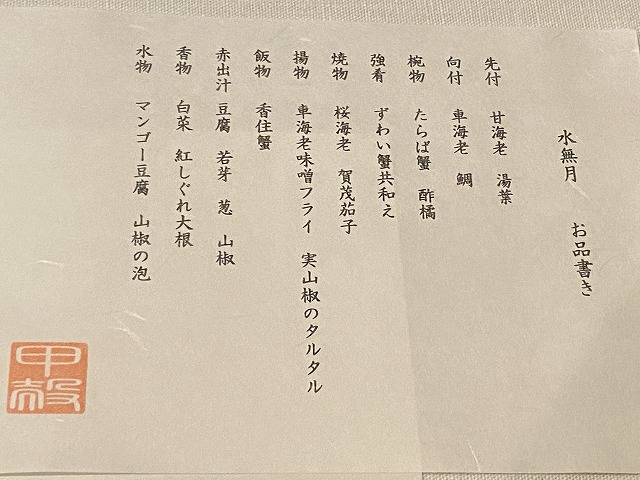 水無月　お品書き
先付　甘海老　湯葉
向付　車海老　鯛
椀物　たらば蟹　酢橘
強肴　ずわい蟹共和え
焼物　桜海老　賀茂茄子
揚物　車海老味噌フライ　実山椒のタルタル
飯物　香住蟹
赤出汁　豆腐　若芽　葱　山椒
香物　白菜　紅しぐれ大根
水物　マンゴー豆腐　山椒の泡
甲殻